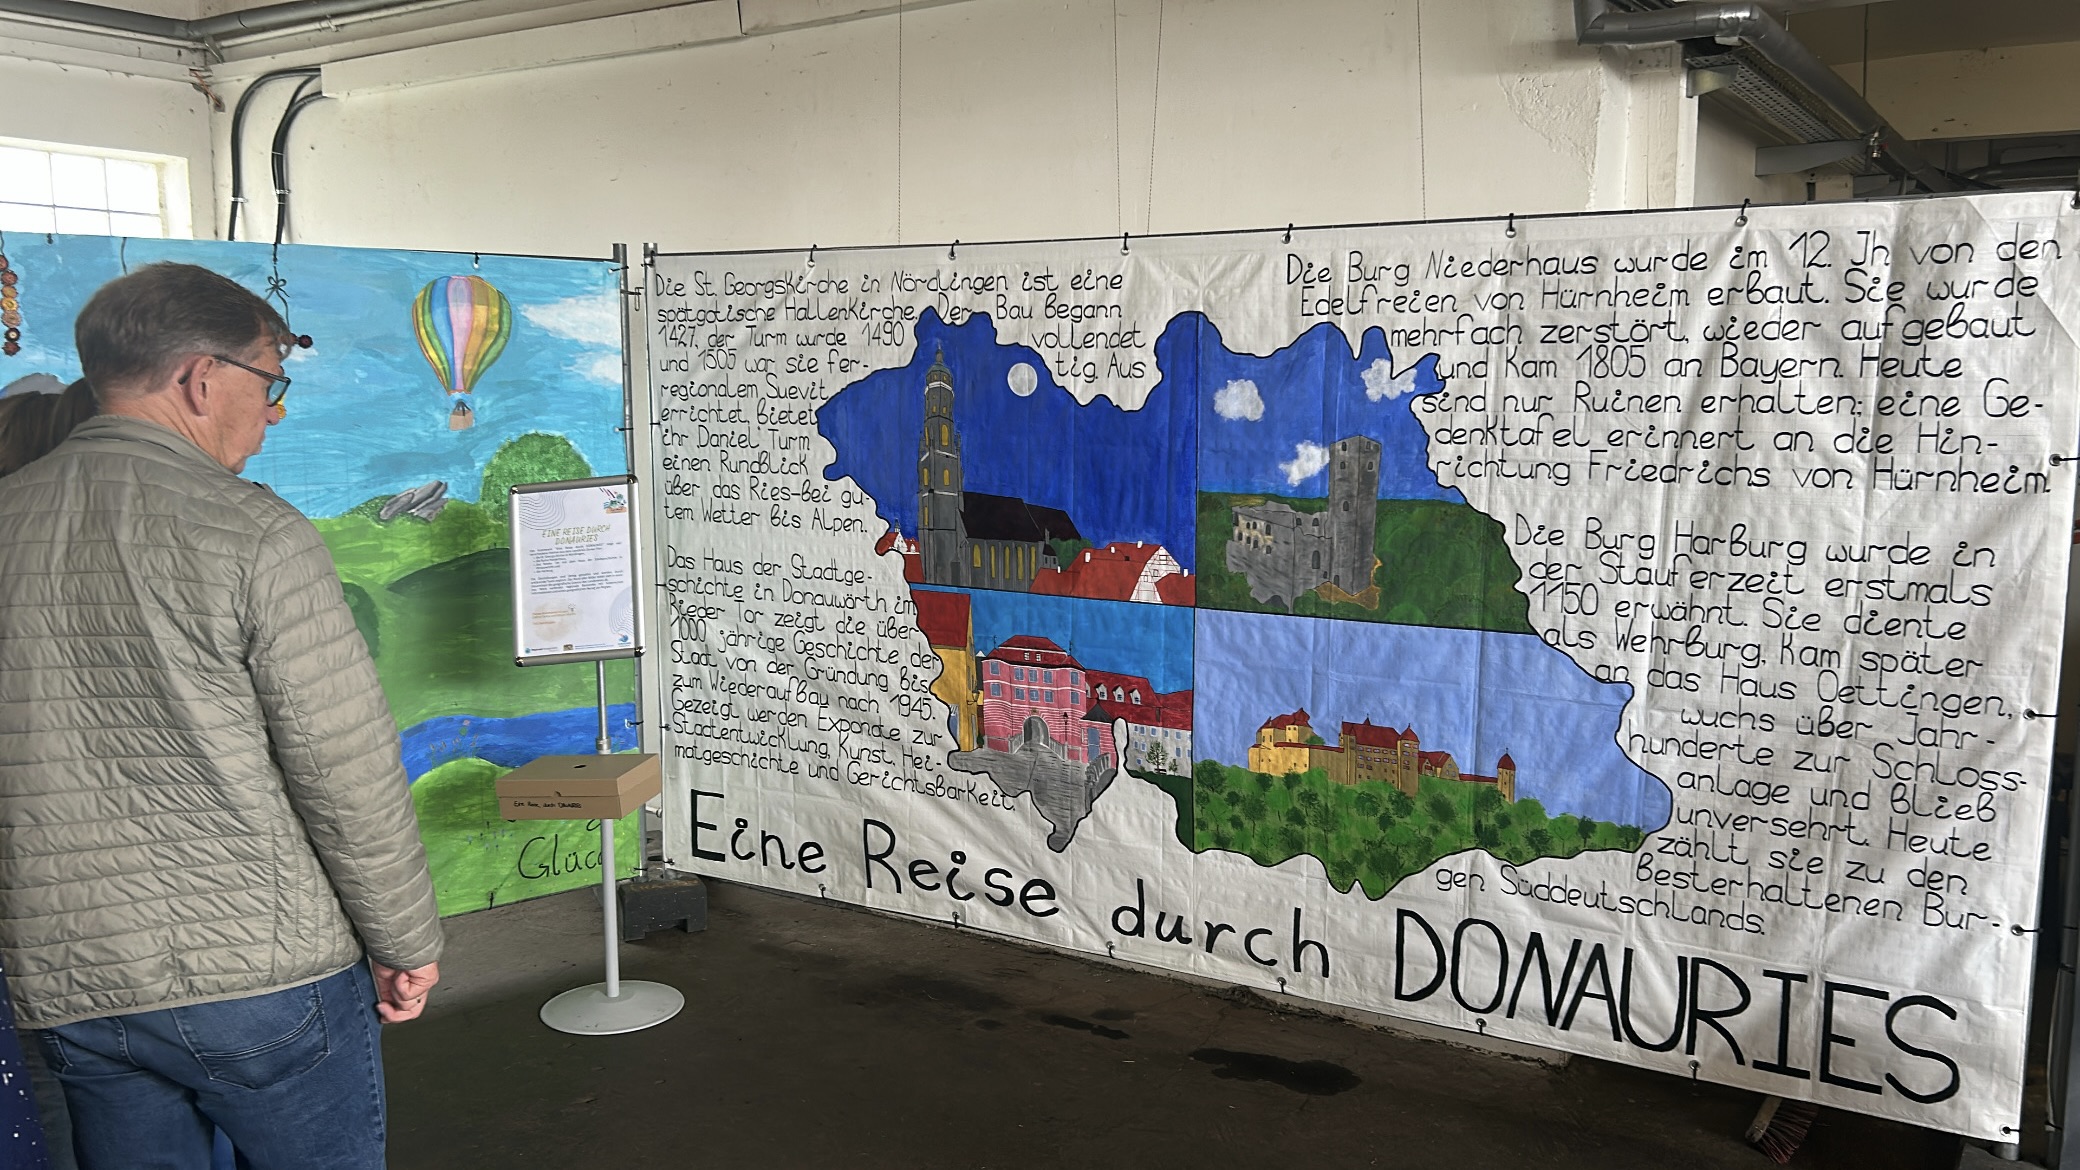 Die St. Georgskirche in Nördlingen ist eine
spätgotische Hallenkirche. Der Bau begann
1427, der Turm wurde 1490 vollendet
und 1505 war sie fer- tig. Aus
regionalem Suevit
errichtet, bietet
ihr Daniel Turm
einen Rundblick
über das Ries-bei gu-
tem Wetter bis Alpen.
Das Haus der Stadtge-
schichte in Donauwörth im
Rieger Tor zeigt die über
1000 jährige Geschichte der
Stadt von der Gründung bis
zum Wiederaufbau nach 1945.
Gezeigt werden Exponate zur
Stadtentwicklung, Kunst, Hei-
matgeschichte und Gerichtsbarkeit.
Die Burg Niederhaus wurde im 12. Jh von den
Edelfreien von Hürnheim erbaut. Sie wurde
mehrfach zerstört, wieder aufgebaut
und kam 1805 an Bayern. Heute
sind nur Ruinen erhalten; eine Ge-
denktafel erinnert an die Hin-
richtung Friedrichs von Hürnheim.
Die Burg Harburg wurde in
der Stauferzeit erstmals
1150 erwähnt. Sie diente
als Wehrburg, kam später
an das Haus Oettingen,
wuchs über Jahr-
hunderte zur Schloss-
anlage und blieb
unversehrt. Heute
zählt sie zu den
Besterhaltenen Bur-
gen Süddeutschlands.
Eine Reise durch DONAURIES
EINE REISE DURCH
DONAURIES
Eine Reise durch DONAURIES